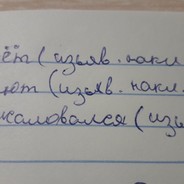 ёт (изъяв. накл.
ют (изъяв. накл.
жаловался (изъ